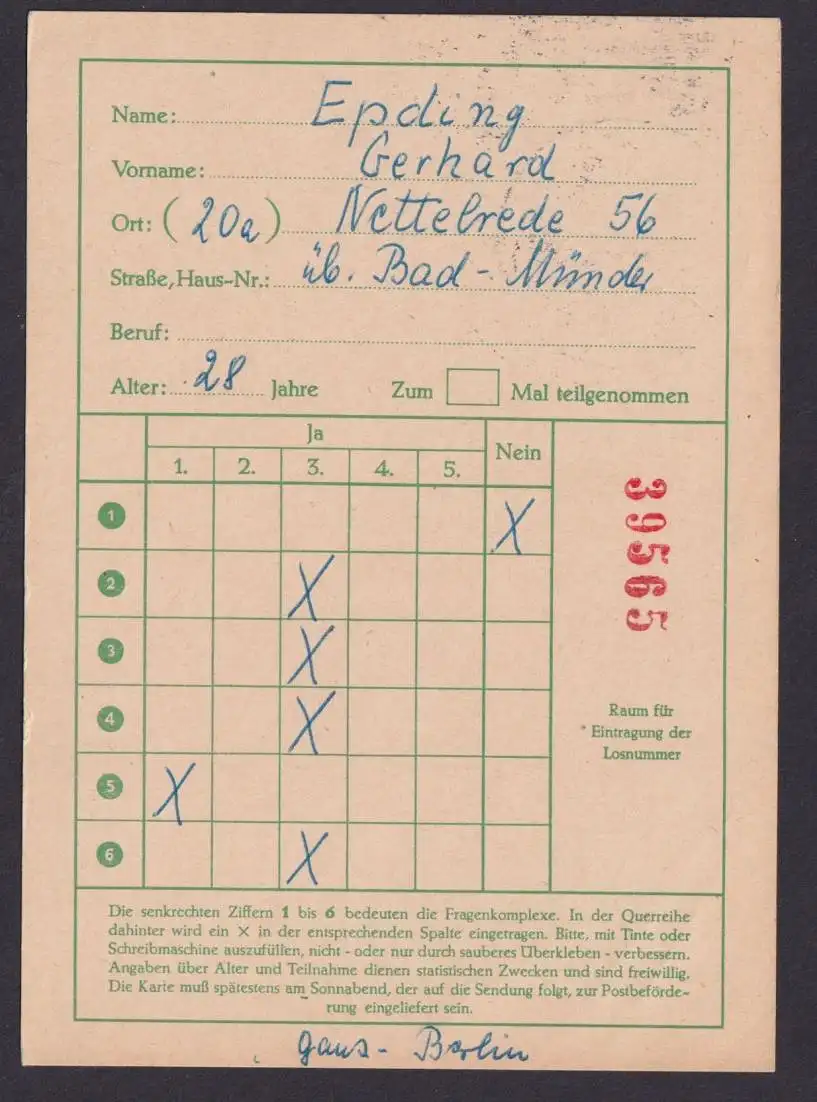 Name: Epding
Vorname: Gerhard
Ort: (20a) Nettelrede 56
Straße, Haus-Nr.: üb. Bad-Münder
Beruf:
Alter: 28 Jahre Zum Mal teilgenommen
Ja Nein
1. 2. 3. 4. 5.
1 X
2 X
3 X
4 X
5 X
6 X
39565
Raum für
Eintragung der
Losnummer
Die senkrechten Ziffern 1 bis 6 bedeuten die Fragenkomplexe. In der Querreihe
dahinter wird ein × in der entsprechenden Spalte eingetragen. Bitte, mit Tinte oder
Schreibmaschine auszufüllen, nicht - oder nur durch sauberes Überkleben - verbessern.
Angaben über Alter und Teilnahme dienen statistischen Zwecken und sind freiwillig.
Die Karte muß spätestens am Sonnabend, der auf die Sendung folgt, zur Postbeförde-
rung eingeliefert sein.
Gans- Berlin